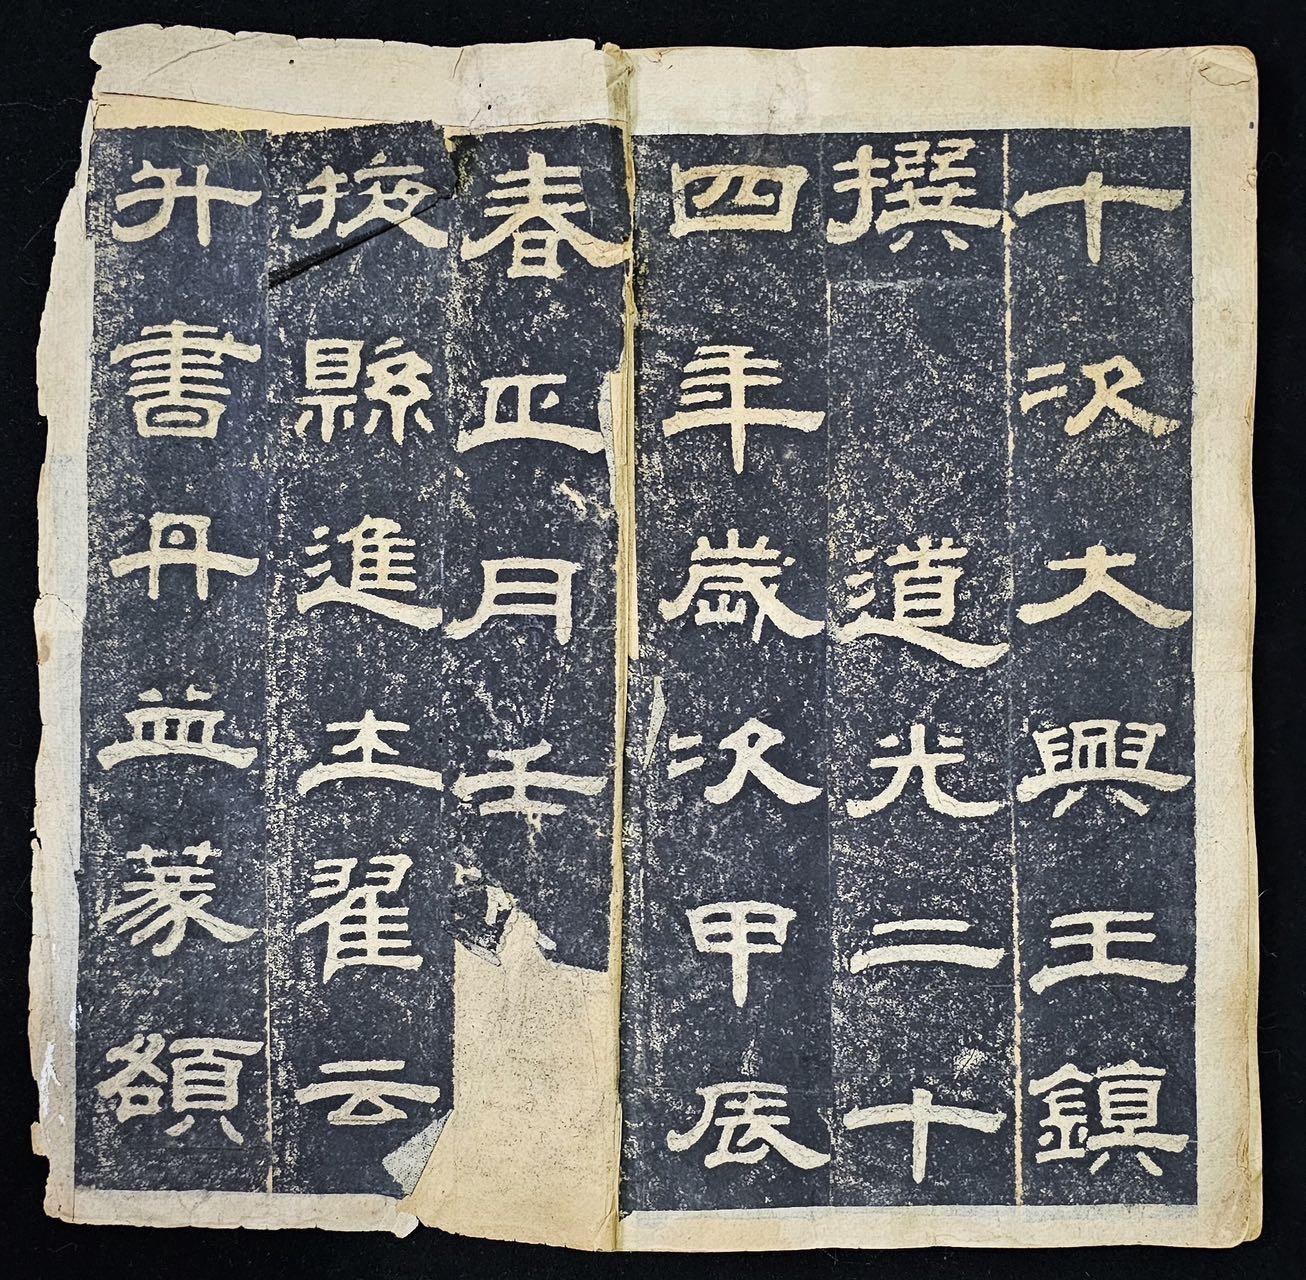 十次大興王鎮
撰道光二十
四年歲次甲辰
春正月壬
掖縣進士翟云
升書丹並篆額